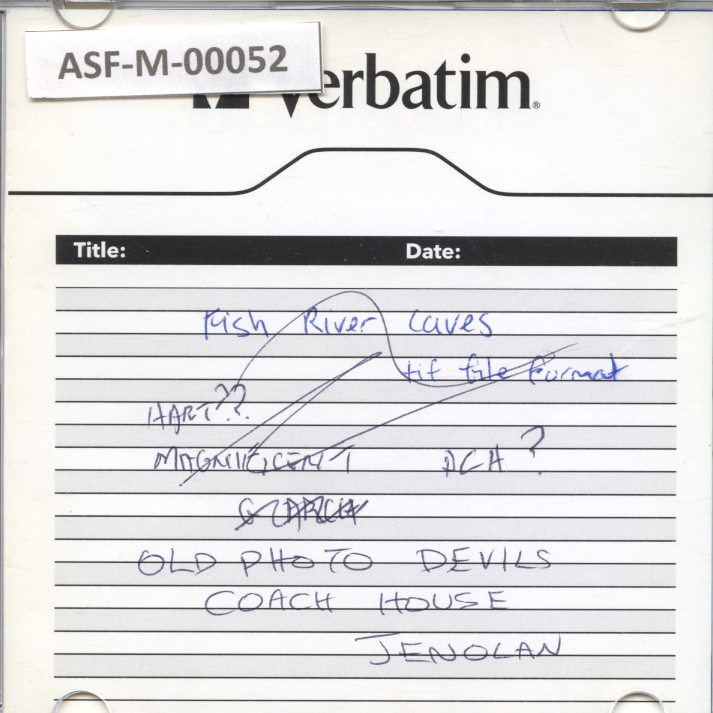 ASF-M-00052
Verbatim®
Title: Date:
Fish River Caves
tif file format
HART??
MAGNIFICENT ACH?
OLD PHOTO DEVILS
COACH HOUSE
JENOLAN